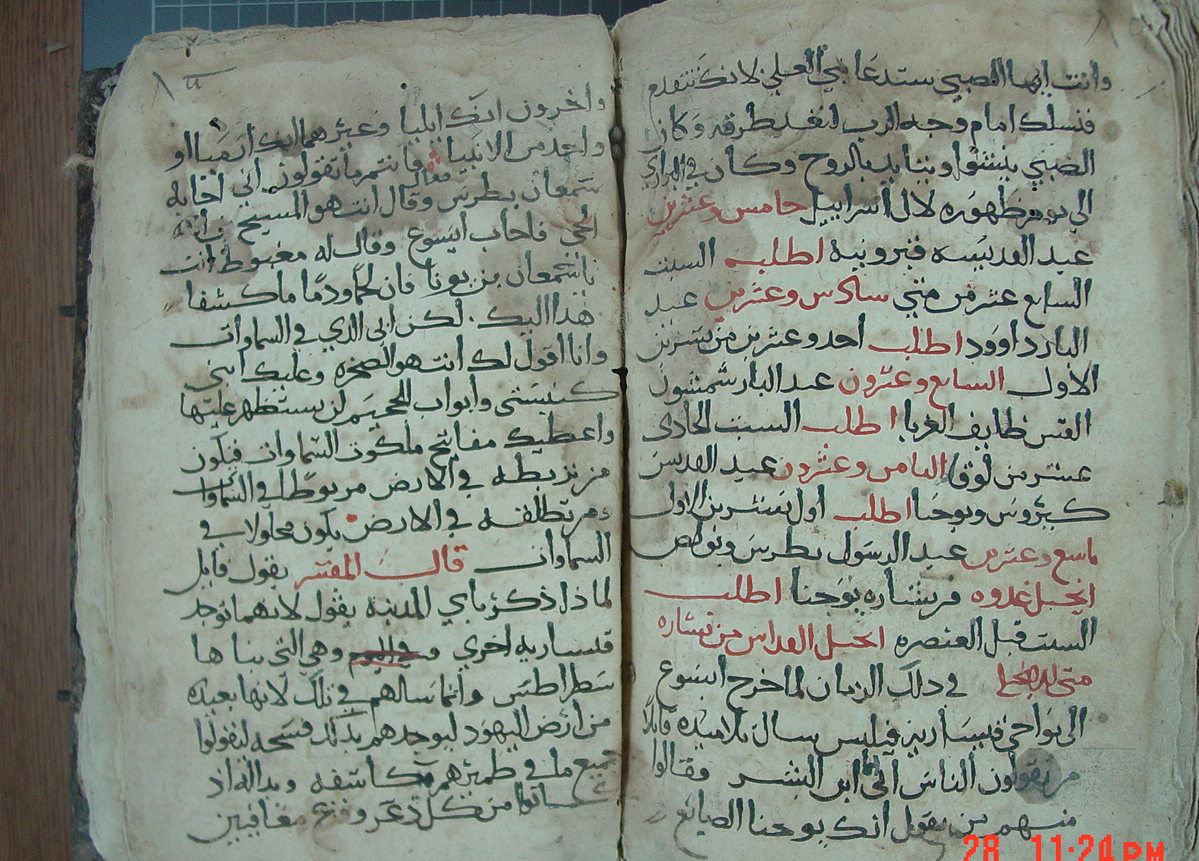 وانت ايها الصبي ستدعا نبي العلي لانك تتقدم
فتسلك امام وجه الرب لتعد طرقه وكان
الصبي ينشوا ويتايد بالروح وكان في البراري
الي يوم ظهوره لال اسراييل خامس وعشرين
عيد القديسه فبرونيه اطلبه السبت
السابع عشر من متي سادس وعشرين عيد
البار داوود اطلب احد وعشرين من تشرين
الاول السابع وعشرون عيد البار شمشون
القس ظايف الغربا اطلب السبت الحادي
عشر من لوقا الثامن وعشرون عيد القديس
كيروس ويوحنا اطلب اول تشرين الاول
تاسع وعشرين عيد الرسول بطرس وبولص
انجيل غدوه من بشاره يوحنا اطلب
السبت قبل العنصره انجيل القداس من بشاره
متي في ذلك الزمان لما خرج ايسوع
الي نواحي قيساريه فيلبس سال تلاميذه قايلا
من تقولون الناس اني انا ابن البشر فقالوا
منهم من يقول انك يوحنا الصابغ
واخرون انك ايليا وغيرهما انك ارميا او
واحد من الانبيا فقال فانتم ما تقولون اني اجابه
سمعان بطرس وقال انت هو المسيح ابن الله
الحي فاجاب ايسوع وقال له مغبوط انت
يا شمعان بن يونا فان لحما ودما ما كشفا
هذا اليك لكن ابي الذي في السماوات
وانا اقول لك انت هو الصخره وعليك ابني
كنيستي وابواب الجحيم لن يستظهر عليها
واعطيك مفاتيح ملكوت السماوات فيكون
من تربطه في الارض مربوطا في السماوات
ومن تطلقه في الارض يكون محلولا في
السماوات قال المفسر يقول قايل
لماذا ذكر باي المدينه يقول لانهما توجد
قيساريه اخري وهي التي بناها
سطراطس وانما سالهم في تلك لانها بعيده
من ارض اليهود ليوجدهم بذلك فسحه ليقولوا
جميع ما في ظميرهم مكاشفه وبداله اذ
كانوا من كل ذعر وفزع معافيين
28 11:24 PM